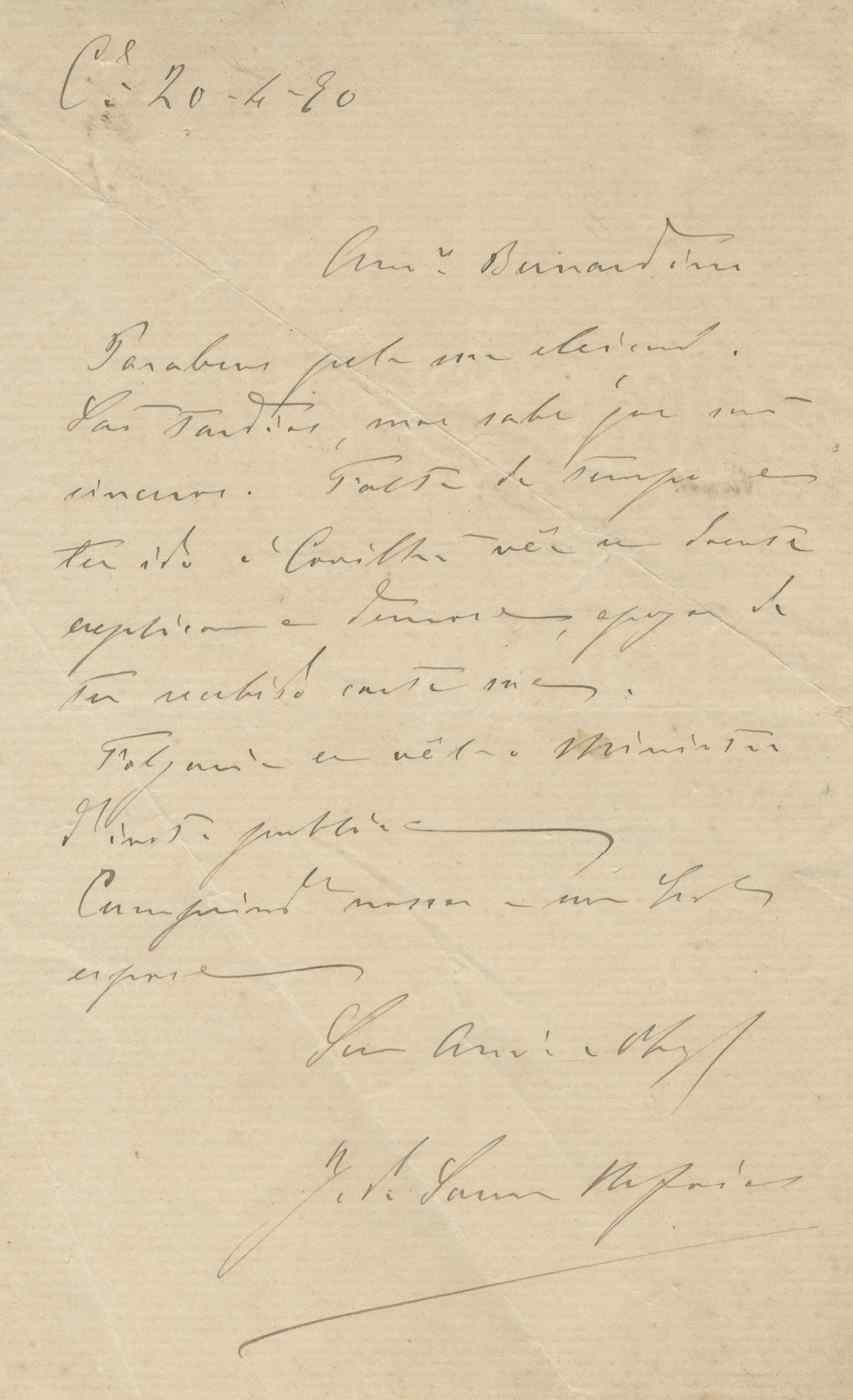 C.ª 20-4-90
Am.º Bernardino
Parabens pela sua eleição.
São tardios, mas sabe que são
sinceros. Falta de tempo e
ter ido á Covilhã vêr um doente
explicam a demora, apezar de
ter recebido carta sua.
Folgaria em vêl-o Ministro
d'inst.ª publica
Cumprim.tos nossos a sua
esposa
Seu Am.º e Obg.
J. de Sousa Refoios